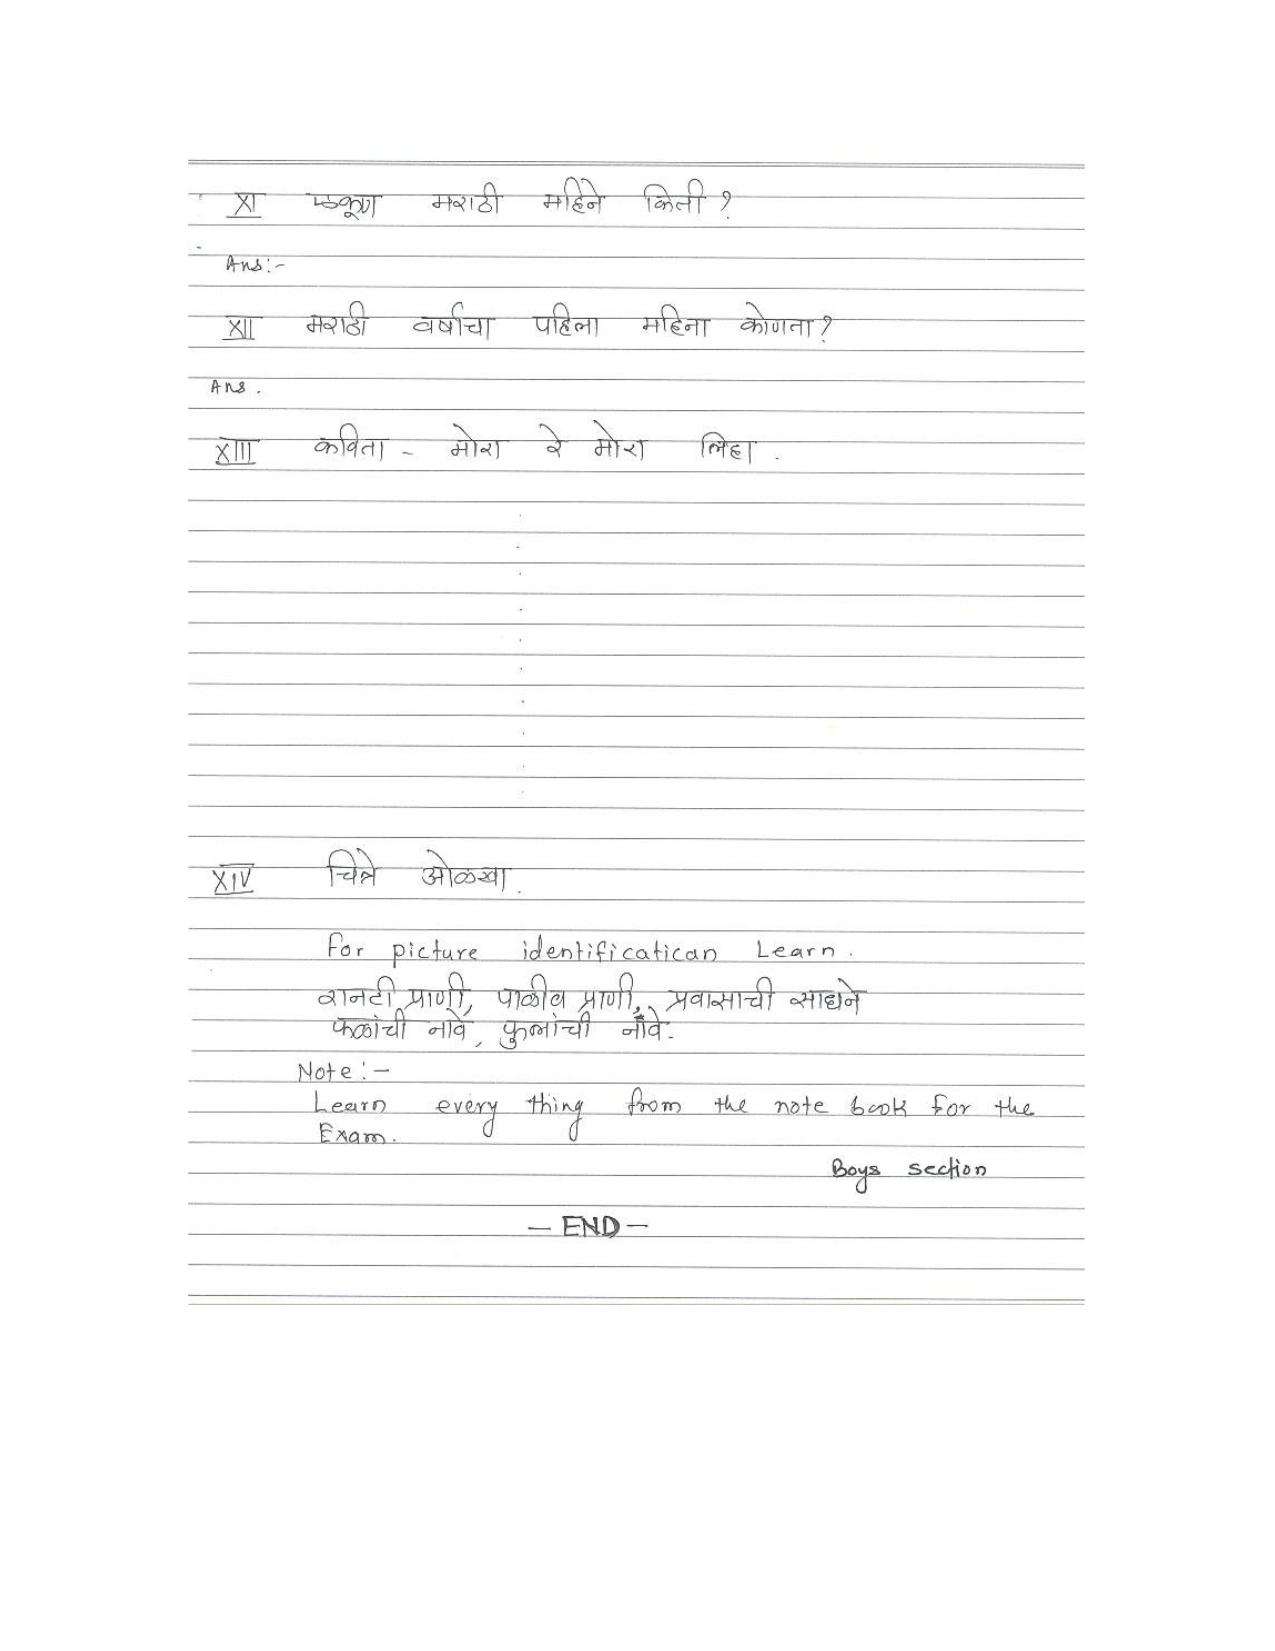 XI एकूण मराठी महिने किती ?
Ans:-
XII मराठी वर्षाचा पहिला महिना कोणता ?
Ans.
XIII कविता - मोरा रे मोरा लिहा .
XIV चित्रे ओळखा .
For picture identificatican Learn .
रानटी प्राणी, पाळीव प्राणी, प्रवासाची साधने
फळांची नावे , फुलांची नांवे.
Note :-
Learn every thing from the note book for the
Exam.
Boys section
- END -